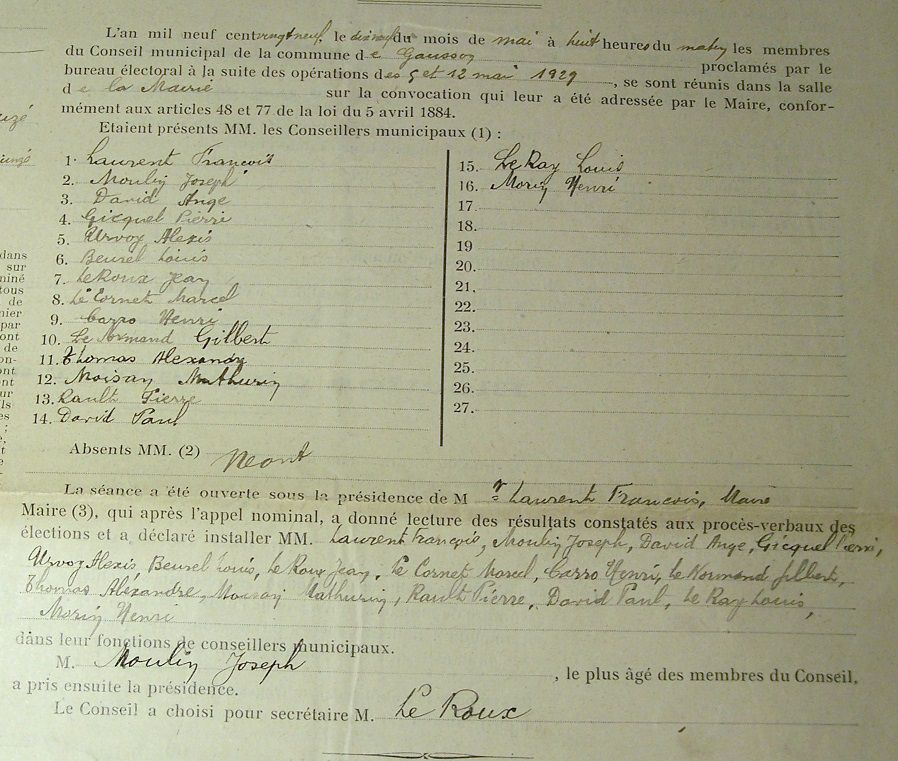 L'an mil neuf cent vingt neuf, le dix neuf du mois de mai à huit heures du matin les membres
du Conseil municipal de la commune de Gausson proclamés par le
bureau électoral à la suite des opérations des 5 et 12 mai 1929, se sont réunis dans la salle
de la Mairie sur la convocation qui leur a été adressée par le Maire, confor-
mément aux articles 48 et 77 de la loi du 5 avril 1884.
Etaient présents MM. les Conseillers municipaux (1) :
1. Laurent François
2. Moulin Joseph
3. David Ange
4. Gicquel Pierre
5. Urvoy Alexis
6. Beurel Louis
7. Le Roux Jean
8. Le Cornet Marcel
9. Carro Henri
10. Le Normand Gilbert
11. Thomas Alexandre
12. Moisan Mathurin
13. Rault Pierre
14. David Paul
15. Le Ray Louis
16. Morin Henri
17.
18.
19
20.
21.
22.
23.
24.
25.
26.
27.
Absents MM. (2) Néant
La séance a été ouverte sous la présidence de M r Laurent François, Maire
Maire (3), qui après l'appel nominal, a donné lecture des résultats constatés aux procès-verbaux des
élections et a déclaré installer MM. Laurent François, Moulin Joseph, David Ange, Gicquel Pierre,
Urvoy Alexis Beurel Louis, Le Roux Jean, Le Cornet Marcel, Carro Henri, Le Normand Gilbert,
Thomas Alexandre, Moisan Mathurin, Rault Pierre, David Paul, Le Ray Louis,
Morin Henri
dans leur fonctions de conseillers municipaux.
M. Moulin Joseph, le plus âgé des membres du Conseil,
a pris ensuite la présidence.
Le Conseil a choisi pour secrétaire M. Le Roux
dans
sur
miné
tous
de
nier
par
ont
de